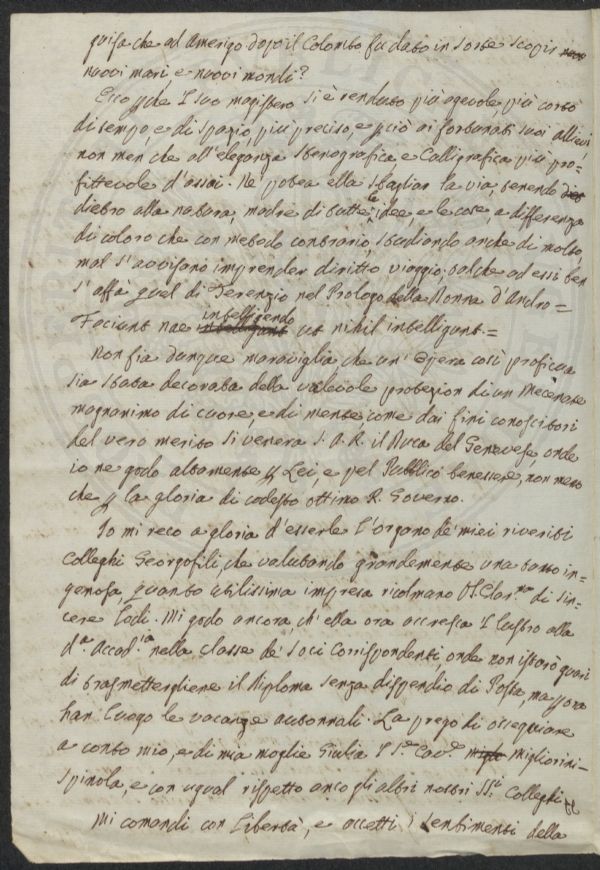 guisa che ad Amerigo dopo il Colombo fu dato in sorte scopir
nuovi mari, e nuovi mondi?
Ecco pche l suo magistero si è renduto più agevole, più corto
di tempo, e di spazio, più preciso, e pciò ai fortunati suoi allievi,
non men che all'eleganza stenografica e Calligrafica più pro=
fittevole d'assai. Ne potea ella sbagliar la via, tenendo
dietro alla natura, madre di tutte le idee, e le cose, a differenza
di coloro che con metodo contrario, studiando anche di molto,
mal s'avvisano imprender diritto viaggio; talche ad essi ben
s'affà quel di Terenzio nel Prologo della Donna d'Andro=
Faciunt nae intelligendo ut nihil intelligant.=
Non fia dunque maraviglia, che un'Opera così proficua
sia stata decorata della valevole protezion di un Mecenate
magnanimo di cuore, e di mente, come dai fini conoscitori
del vero merito si venera S. A. R. il Duca del Genevese, onde
io ne godo altamente p Lei, e pel Pubblico benessere, non meno
che p la gloria di codesto ottimo R. Governo.
Io mi reco a gloria d'esserle l'organo de' miei riveriti
Colleghi Georgofili, che valutando grandemente una tanto in=
gegnosa, quanto utilissima impresa ricolmano V. S. Clar.ma di sin=
cere lodi. Mi godo ancora, ch'ella ora accresca l lustro alla
d.a Accad.ia nella classe de' Soci Corrispondenti, onde non istarò guari
di trasmettergliene il diploma senza dispendio di Posta, ma p ora
han luogo le vacanze autunnali. La prego di ossequiare
a conto mio, e di mia moglie Giulia l S.r Cav.e Migliorini-
Spinola, e con ugual rispetto anco gli altri nostri SS.i Colleghi
Mi comandi con libertà, e accetti i sentimenti della